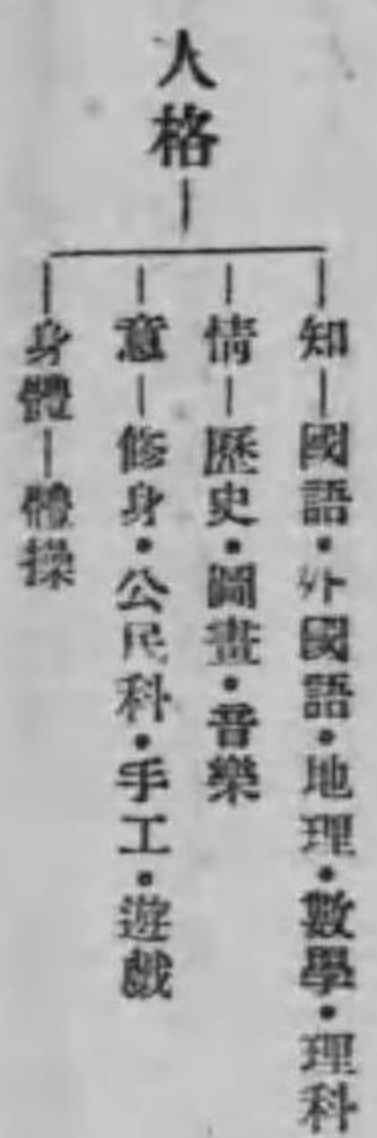 人格
知―國語・外國語・地理・數學・理科
情―歷史・圖畫・音樂
意―修身・公民科・手工・遊戲
身體―體操